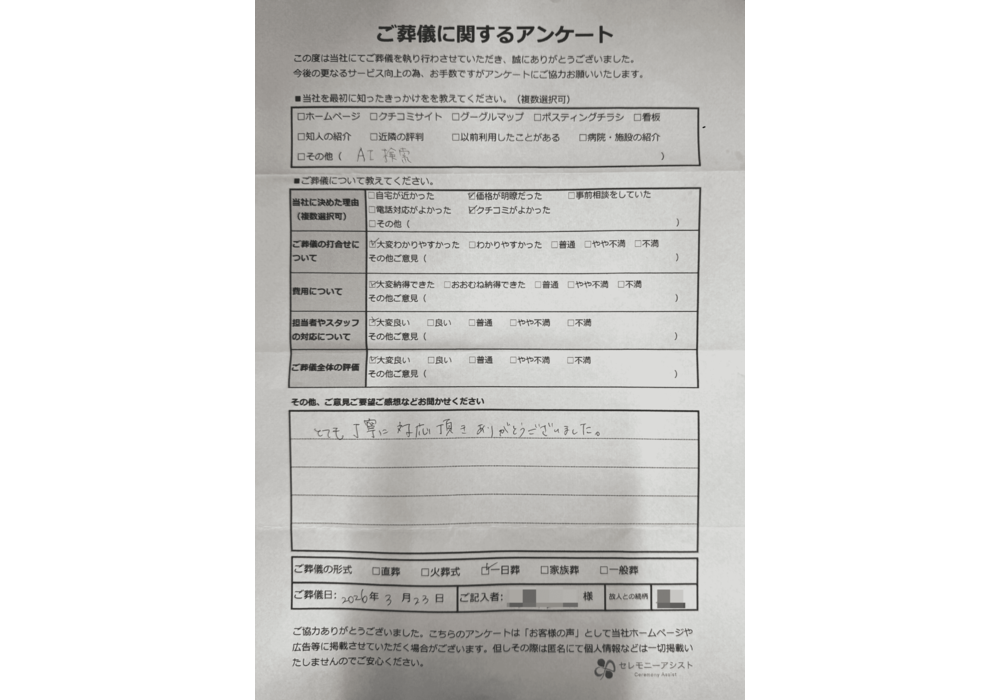 ご葬儀に関するアンケート
この度は当社にてご葬儀を執り行わさせていただき、誠にありがとうございました。
今後の更なるサービス向上の為、お手数ですがアンケートにご協力お願いいたします。
■当社を最初に知ったきっかけをを教えてください。（複数選択可）
□ホームページ □クチコミサイト □グーグルマップ □ポスティングチラシ □看板
□知人の紹介 □近隣の評判 □以前利用したことがある □病院・施設の紹介
□その他（ AI 検索 ）
■ご葬儀について教えてください。
当社に決めた理由（複数選択可）
□自宅が近かった ☑価格が明瞭だった □事前相談をしていた
□電話対応がよかった ☑クチコミがよかった
□その他（ ）
ご葬儀の打合せについて
☑大変わかりやすかった □わかりやすかった □普通 □やや不満 □不満
その他ご意見（ ）
費用について
☑大変納得できた □おおむね納得できた □普通 □やや不満 □不満
その他ご意見（ ）
担当者やスタッフの対応について
☑大変良い □良い □普通 □やや不満 □不満
その他ご意見（ ）
ご葬儀全体の評価
☑大変良い □良い □普通 □やや不満 □不満
その他ご意見（ ）
その他、ご意見ご要望ご感想などお聞かせください
とても丁寧に対応頂きありがとうございました。
ご葬儀の形式 □直葬 □火葬式 ☑一日葬 □家族葬 □一般葬
ご葬儀日：2026年 3月 23日 ご記入者： 様 故人との続柄
ご協力ありがとうございました。こちらのアンケートは「お客様の声」として当社ホームページや
広告等に掲載させていただく場合がございます。但しその際は匿名にて個人情報などは一切掲載い
たしませんのでご安心ください。
セレモニーアシスト
Ceremony Assist